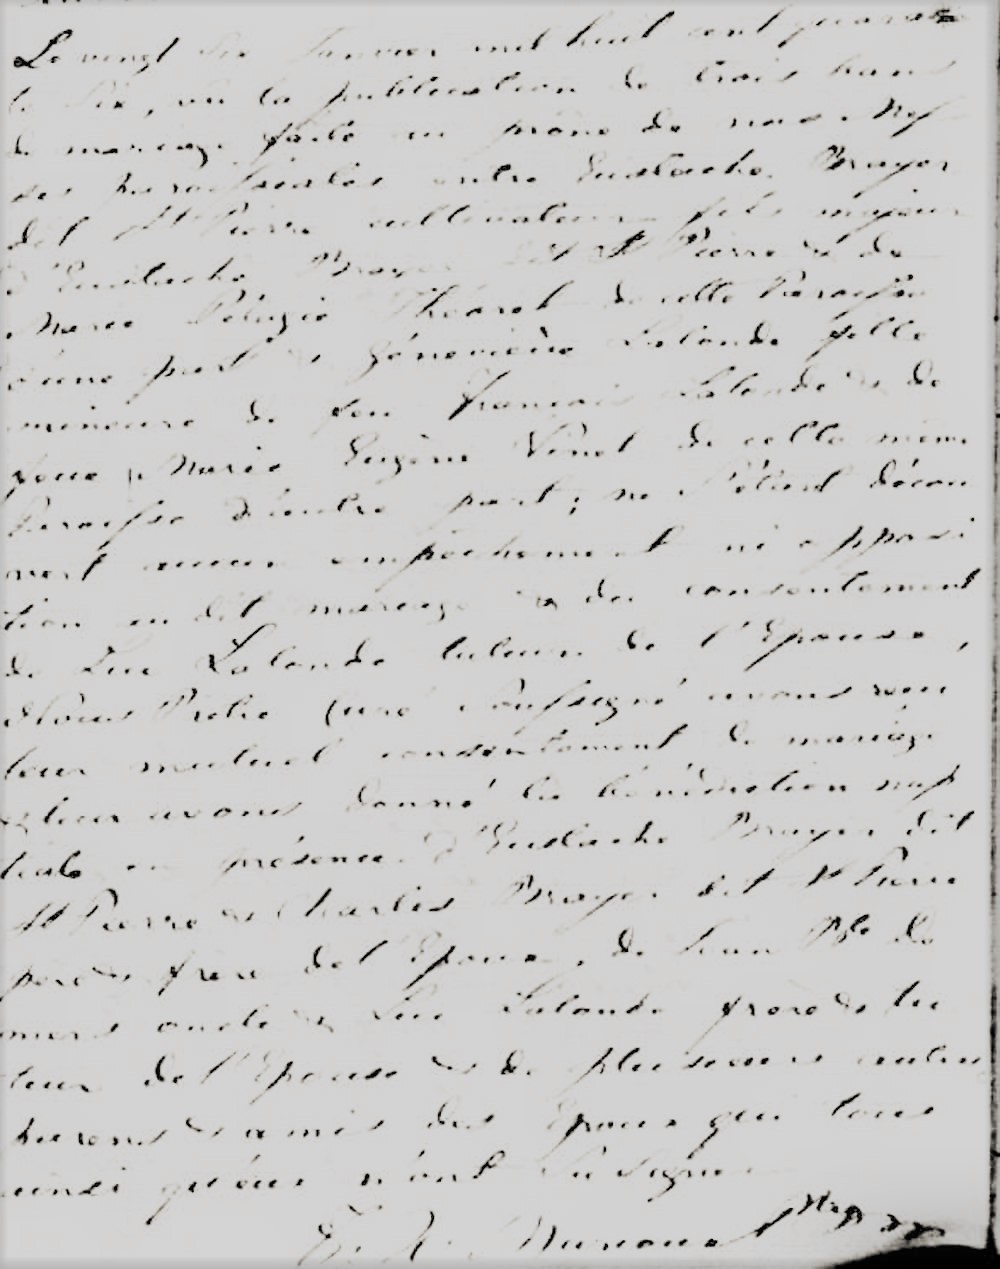 Le vingt six Janvier mil huit cent quaran
te Six, vu la publication de trois bans
de mariage faite au prône de nos Mes
ses paroissiales entre Eustache Brayer
dit St Pierre cultivateur fils majeur
d'Eustache Brayer dit St Pierre & de
Marie Pélagie Théoret de cette Paroisse
d'une part & Géneviève Lalonde fille
mineure de feu François Lalonde & de
feue Marie Eugène Vinet de cette même
Paroisse d'autre part; ne s'étant décou
vert aucun empêchement ni opposi
tion au dit mariage & du consentement
de Luc Lalonde tuteur de l'Epouse,
Nous Prêtre Curé Soussigné avons reçu
leur mutuel consentement de mariage
& leur avons donné la bénédiction nup
tiale en présence d'Eustache Brayer dit
St Pierre & Charles Brayer dit St Pierre
père & frère de l'Epoux, de Jean Bte de
mers oncle & Luc Lalonde frère & tu
teur de l'Epouse & de plusieurs autres
parens & amis des Epoux qui tous
ainsi qu'eux n'ont Su Signer